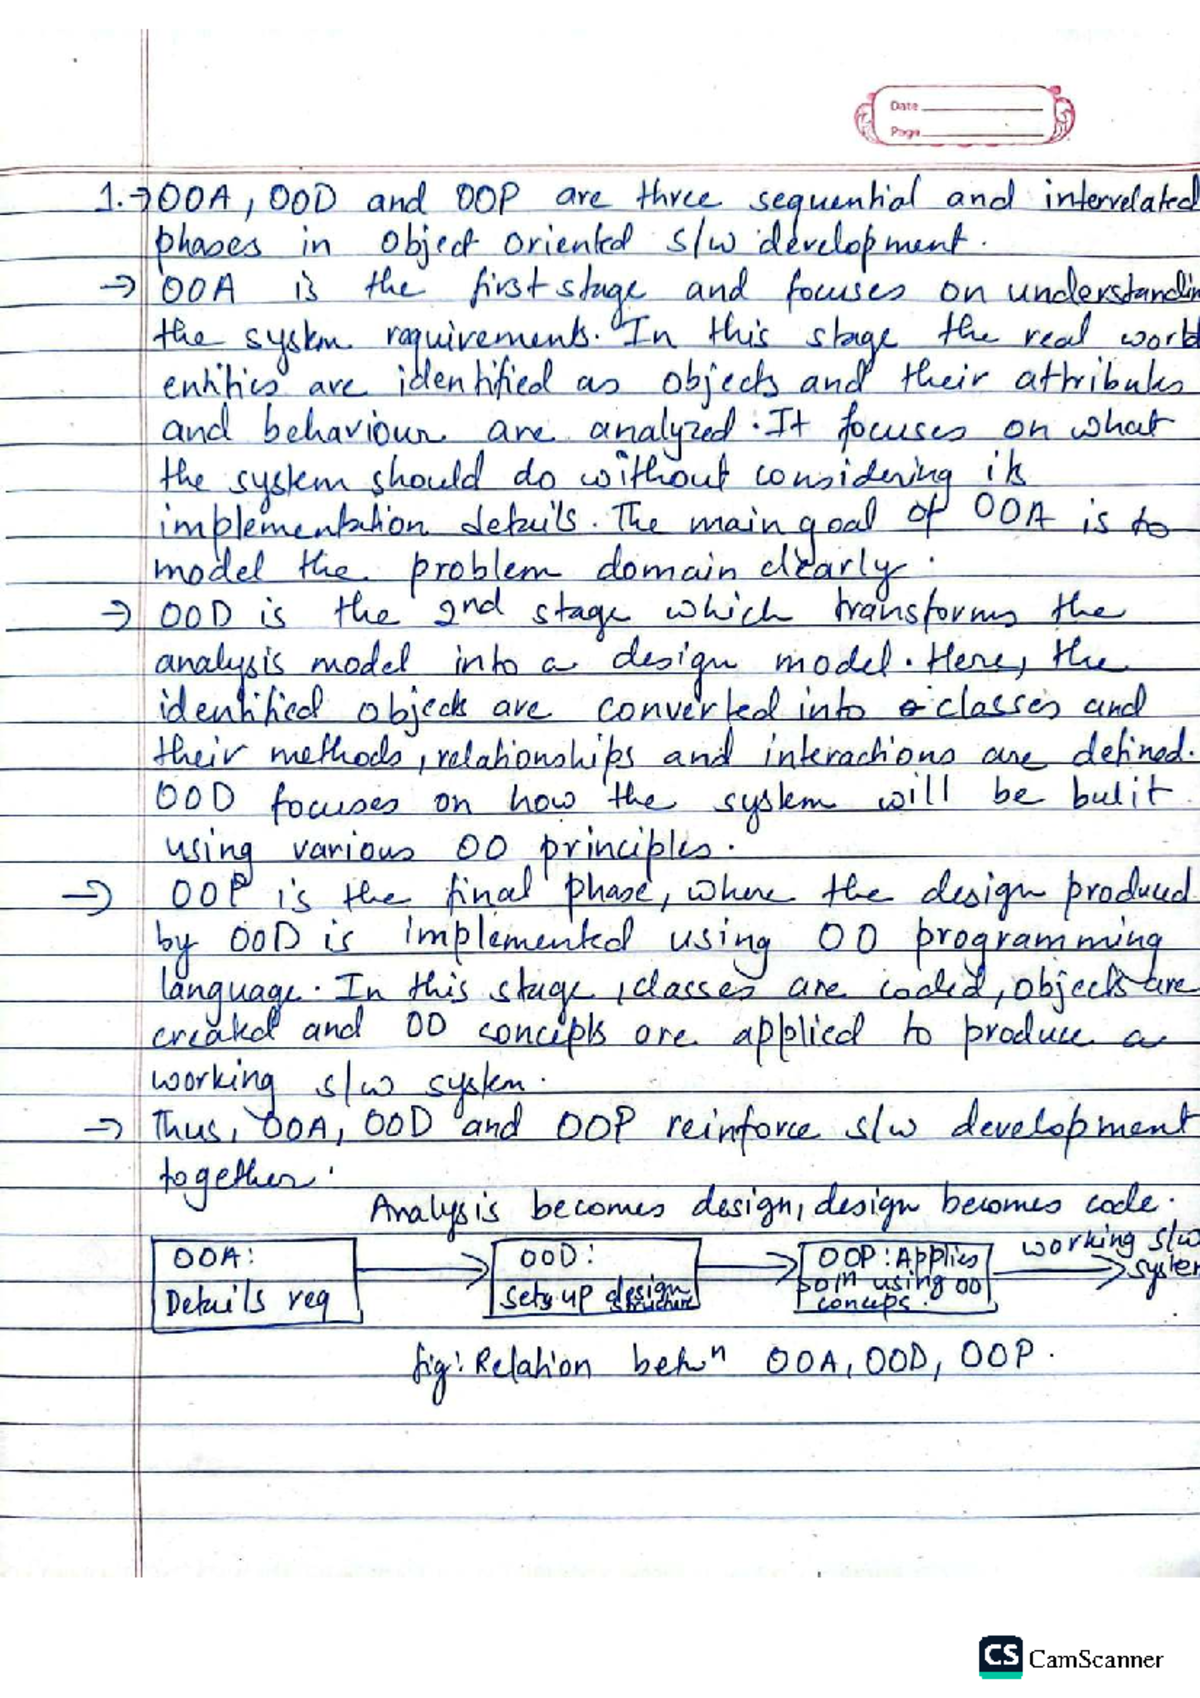 Date
Page
1.→ OOA, OOD and OOP are three sequential and interrelated
phases in object oriented s/w development.
→ OOA is the first stage and focuses on understandin
the system requirements. In this stage the real world
entities are identified as objects and their attributes
and behaviour are analyzed. It focuses on what
the system should do without considering its
implementation details. The main goal of OOA is to
model the problem domain clearly.
→ OOD is the 2nd stage which transforms the
analysis model into a design model. Here, the
identified objects are converted into classes and
their methods, relationships and interactions are defined.
OOD focuses on how the system will be bulit
using various OO principles.
→ OOP is the final phase, where the design produced
by OOD is implemented using OO programming
language. In this stage, classes are coded, objects are
created and OO concepts are applied to produce a
working s/w system.
→ Thus, OOA, OOD and OOP reinforce s/w development
together.
Analysis becomes design, design becomes code.
OOA:
Details req
OOD:
Sets up design
structure
OOP: Applies
soln using OO
concups.
working s/w
system
fig: Relation betwn OOA, OOD, OOP.
CS CamScanner